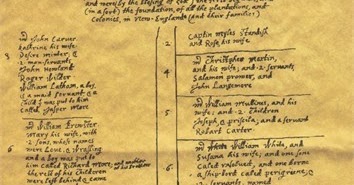 and merely the blessing of God)
(in a sort) the foundation, of all the plantations, and
Colonies, in New-England (and their families)
8
mr John Carver
kathrine his wife
Desire minter, &
2. man-servants
John Howland
Roger Wilder
William Latham, a boy,
& a maid servant. &
child was put to him
called Jasper More
6
mr William Brewster
Mary his wife, with
2. sons, whose names
were Love, & Wrasling
and a boy was put to
him called Richard More; and another
of his brothers
the rest of his Children
were left behind &
2
Captin Myles Standish
and Rose, his wife
4
mr Christpher Martin,
and his wife; and 2. servants,
Salamon prower, and
John Langemore
5
mr William Mullines, and his
wife; and 2. Children
Joseph, & priscila; and a servant
Robart Carter.
6
mr William White, and
Susana his wife; and one sone
called resolved, and one borne
a ship-bord called perigriene; &
2. servants, named